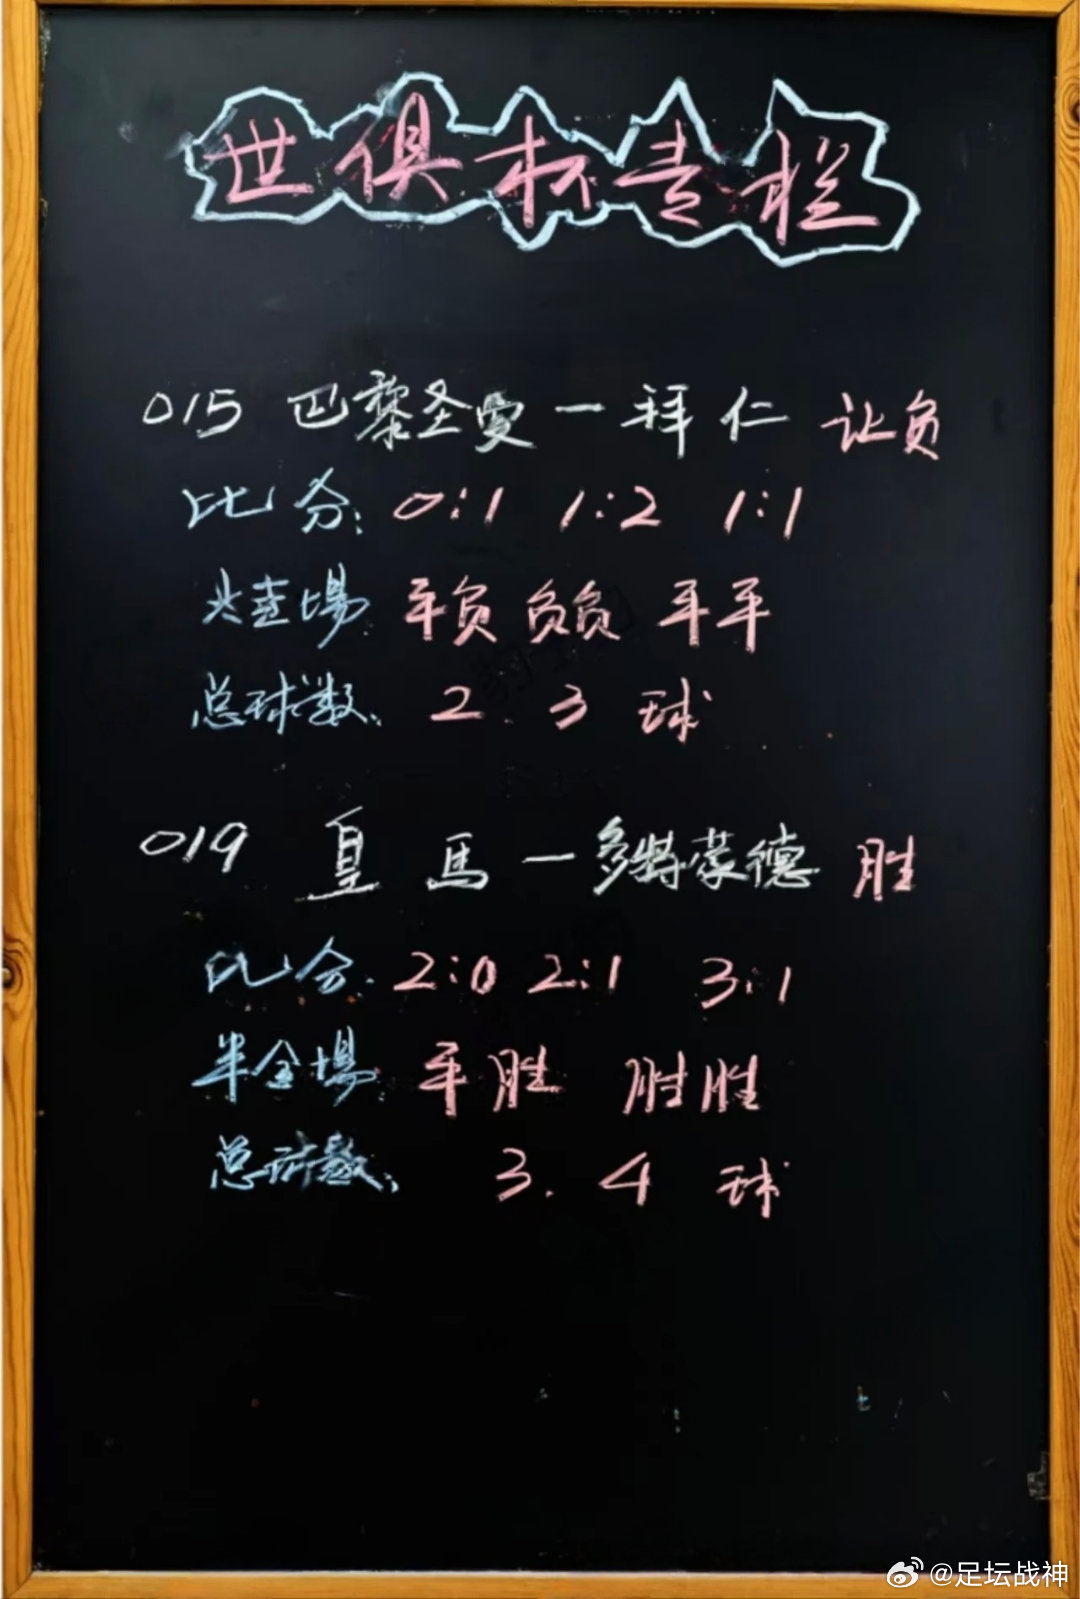 世俱杯专栏
015 巴黎圣曼一拜仁 让负
比分: 0:1 1:2 1:1
半全場 平负 负负 平平
总球数: 2. 3 球
019 皇馬一多特蒙德 胜
比分: 2:0 2:1 3:1
半全場: 平胜 胜胜
总球数: 3. 4 球
@足坛战神